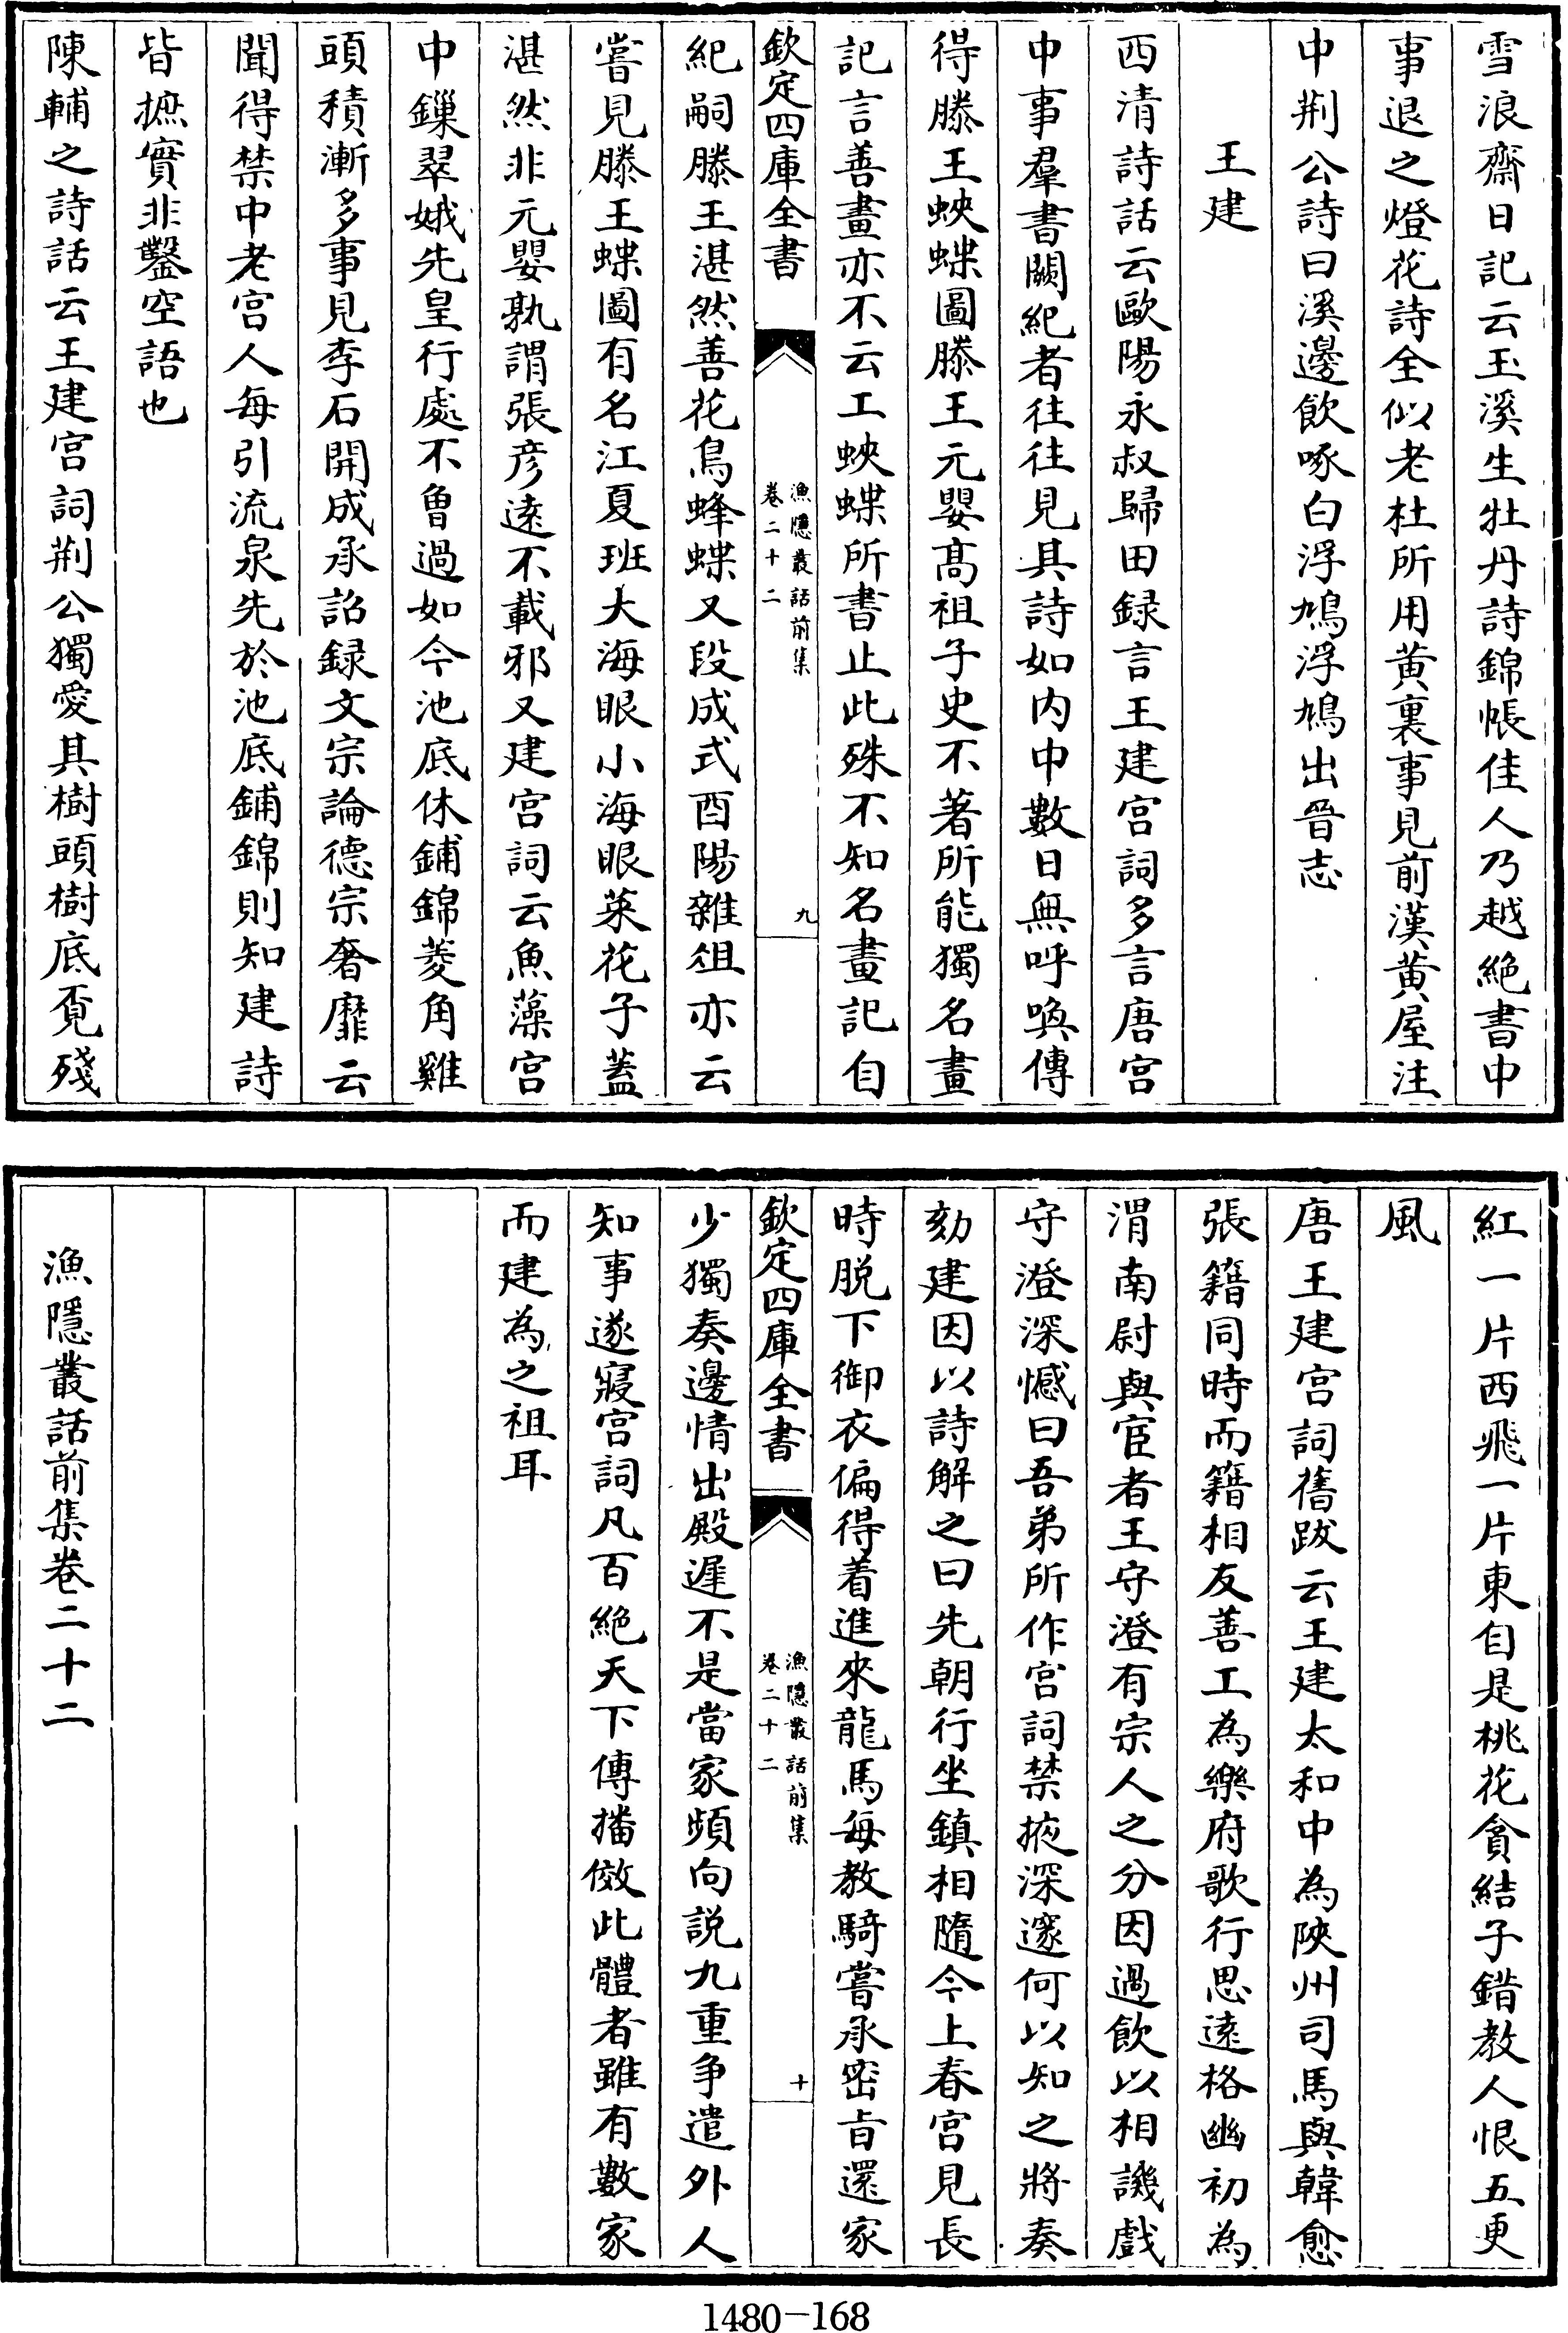 雪浪齋日記云玉溪生牡丹詩錦帳佳人乃越絶書中
事退之燈花詩全似老杜所用黄裏事見前漢黄屋注
中荆公詩曰溪邊飲啄白浮鳩浮鳩出晉志
王建
西清詩話云歐陽永叔歸田録言王建宫詞多言唐宫
中事羣書闕紀者往往見其詩如内中數日無呼喚傳
得滕王蛺蝶圖滕王元嬰髙祖子史不著所能獨名畫
記言善畫亦不云工蛺蝶所書止此殊不知名畫記自
欽定四庫全書
漁隱叢話前集
卷二十二
九
紀嗣滕王湛然善花鳥蜂蝶又段成式酉陽雜俎亦云
嘗見滕王蝶圖有名江夏班大海眼小海眼菜花子蓋
湛然非元嬰孰謂張彦逺不載邪又建宫詞云魚藻宫
中鏁翠娥先皇行處不曽過如今池底休鋪錦菱角雞
頭積漸多事見李石開成承詔録文宗論德宗奢靡云
聞得禁中老宫人每引流泉先於池底鋪錦則知建詩
皆摭實非鑿空語也
陳輔之詩話云王建宫詞荆公獨愛其樹頭樹底覓殘
紅一片西飛一片東自是桃花貪結子錯教人恨五更
風
唐王建宫詞舊跋云王建太和中為陝州司馬與韓愈
張籍同時而籍相友善工為樂府歌行思逺格幽初為
渭南尉與宦者王守澄有宗人之分因過飲以相譏戲
守澄深憾曰吾弟所作宫詞禁掖深邃何以知之將奏
劾建因以詩解之曰先朝行坐鎮相隨今上春宫見長
時脱下御衣偏得着進來龍馬每教騎嘗承密旨還家
欽定四庫全書
漁隱叢話前集
卷二十二
十
少獨奏邊情出殿遲不是當家頻向説九重争遣外人
知事遂寢宫詞凡百絶天下傳播倣此體者雖有數家
而建為之祖耳
漁隱叢話前集卷二十二
1480-168